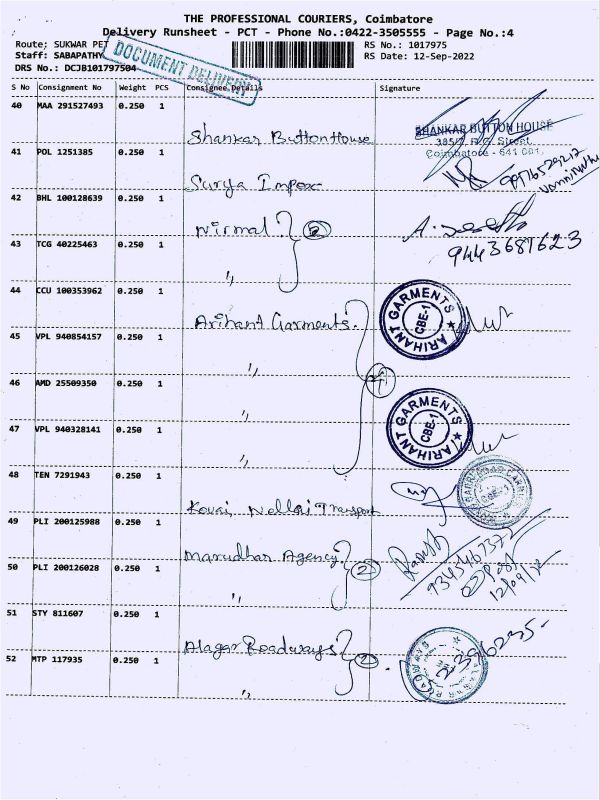 THE PROFESSIONAL COURIERS, Coimbatore
Delivery Runsheet - PCT - Phone No.:0422-3505555 - Page No.:4
Route; SUKWAR PET
RS No.: 1017975
Staff: SABAPATHY
RS Date: 12-Sep-2022
DRS No.: DCJB101797504
DOCUMENT DELIVERY
S No Consignment No Weight PCS Consignee Details Signature
40 MAA 291527493 0.250 1 Shankar Button House
SHANKAR BUTTON HOUSE
Coimbatore - 641 001.
41 POL 1251385 0.250 1 Surya Impex
42 BHL 100128639 0.250 1 Nirmal
9443687623
43 TCG 40225463 0.250 1 ,,
44 CCU 100353962 0.250 1 Arihant Garments.
ARIHANT GARMENTS CBE-1
45 VPL 940854157 0.250 1 ,,
46 AMD 25509350 0.250 1 ,,
47 VPL 940328141 0.250 1 ,,
ARIHANT GARMENTS CBE-1
48 TEN 7291943 0.250 1 Kovai Nellai Transport
49 PLI 200125988 0.250 1 Marudhar Agency
9345467372
50 PLI 200126028 0.250 1 ,, 2
51 STY 811607 0.250 1 Alagar Roadways
2396235
52 MTP 117935 0.250 1 ,, 2